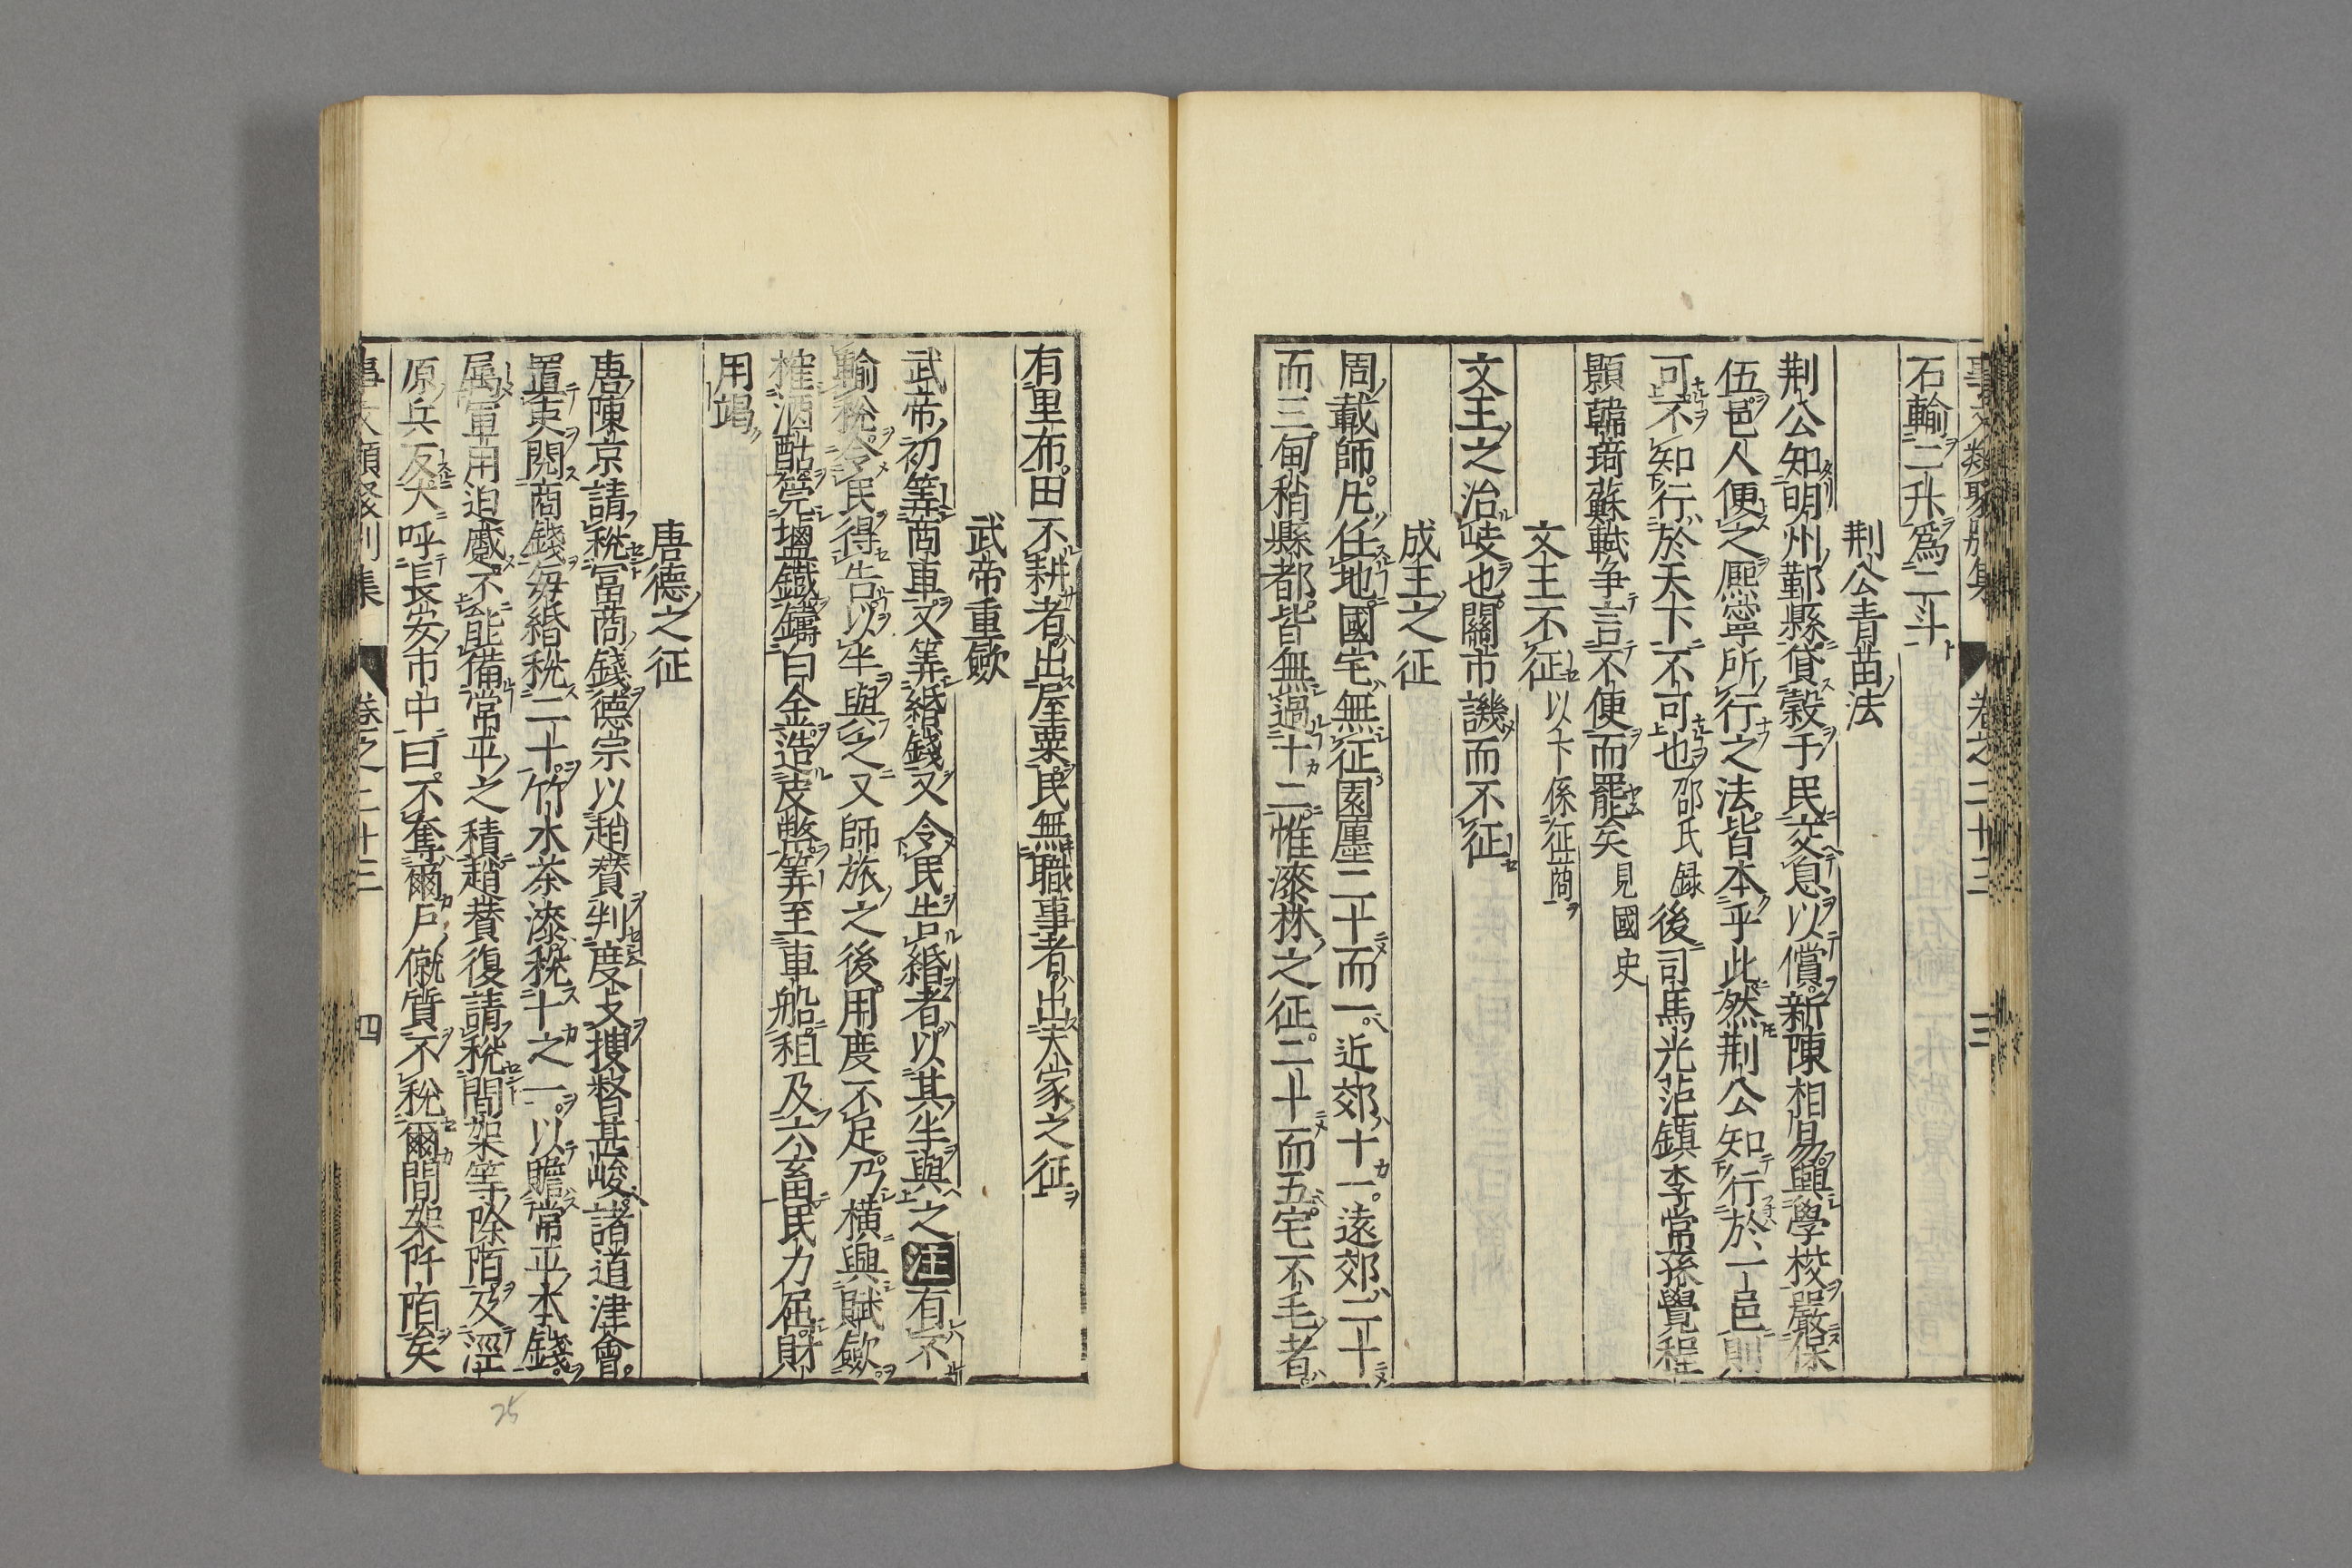 事文類聚別集 卷之二十三 三
石輸二升爲二斗
荆公青苗法
荆公知明州鄞縣貸穀于民交息以償新陳相易興學校嚴保
伍邑人便之熈寧所行之法皆本乎此然荆公知行於一邑則
可不知行於天下不可也邵氏録後司馬光范鎮李常孫覺程
顥韓琦蘇軾争言不便而罷矣見國史
文王不征以下係征商
文王之治岐也關市譏而不征
成王之征
周載師凡任地國宅無征園廛二十而一近郊十一遠郊二十
而三甸稍縣都皆無過十二惟漆林之征二十而五宅不毛者
有里布田不耕者出屋粟民無職事者出夫家之征
武帝重歛
武帝初筭商車又筭緡錢又令民告緡者以其半與之注有不
輸稅令民得告以半與之又師旅之後用度不足乃橫興賦歛
榷酒酤筦鹽鐵鑄白金造皮幣筭至車船租及六畜民力屈財
用竭
唐德之征
唐陳京請稅冨商錢德宗以趙賛判度支搜督甚峻諸道津會
置吏閱商錢每緡稅二十竹木茶漆稅十之一以贍常平本錢
属軍用迫蹙不能備常平之積趙賛復請稅間架等除陌及涇
原兵反大呼長安市中曰不奪爾戶僦質不稅爾間架阡陌矣
事文類聚別集 卷之二十三 四
25